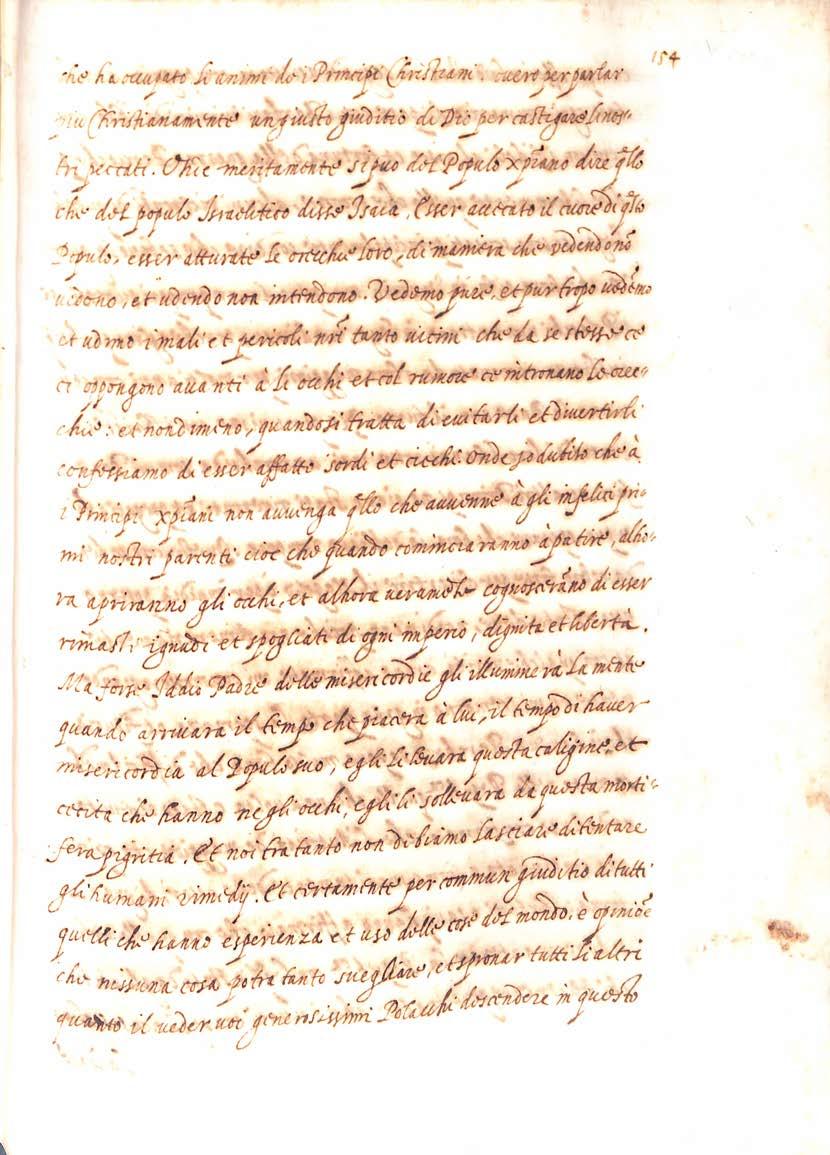 154
che ha occupato li animi de i Principi Christiani. overo per parlar
piu Christianamente un giusto giuditio di Dio per castigare li nos-
tri peccati. Ohie meritamente si puo del Populo xp̃iano dire q̃llo
che del populo Israelitico disse Isaia, Esser accecato il cuore di q̃llo
Populo, esser atturate le orecchie loro, di maniera che vedendo nõ
vedono, et udendo non intendono. Vedemo pure, et pur tropo vedẽmo
et udimo i mali et pericoli nr̃i tanto vicini che da se stesse ce
ci oppongono avanti à li occhi et col rumore ce intronano le orec-
chie: et nondimeno, quando si tratta di evitarli et divertirli
confessiamo di esser affatto sordi et ciechi. Onde io dubito che à
i Principi xp̃iani non avvenga q̃llo che avvenne à gli infelici pri-
mi nostri parenti cioe che quando cominciaranno à patire, alho-
ra apriranno gli occhi, et alhora veramẽte cognoscerãno di esser
rimasti ignudi et spogliati di ogni imperio, dignita et libertà.
Ma forse Iddio Padre delle misericordie gli illuminerà la mente
quando arrivara il tempo che piacera à lui, il tempo di haver
misericordia al Populo suo, egli li levara questa caligine, et
cecita che hanno ne gli occhi, egli li sollevara da questa morti-
fera pigritia. Et noi tra tanto non dibiamo lasciare di tentare
gli humani rimedij. Et certamente per commun giuditio di tutti
quelli che hanno esperienza et uso delle cose del mondo, è opiniõe
che nissuna cosa potra tanto svegliare, et spronar tutti li altri
quanto il veder voi generosissimi Polacchi descendere in questo